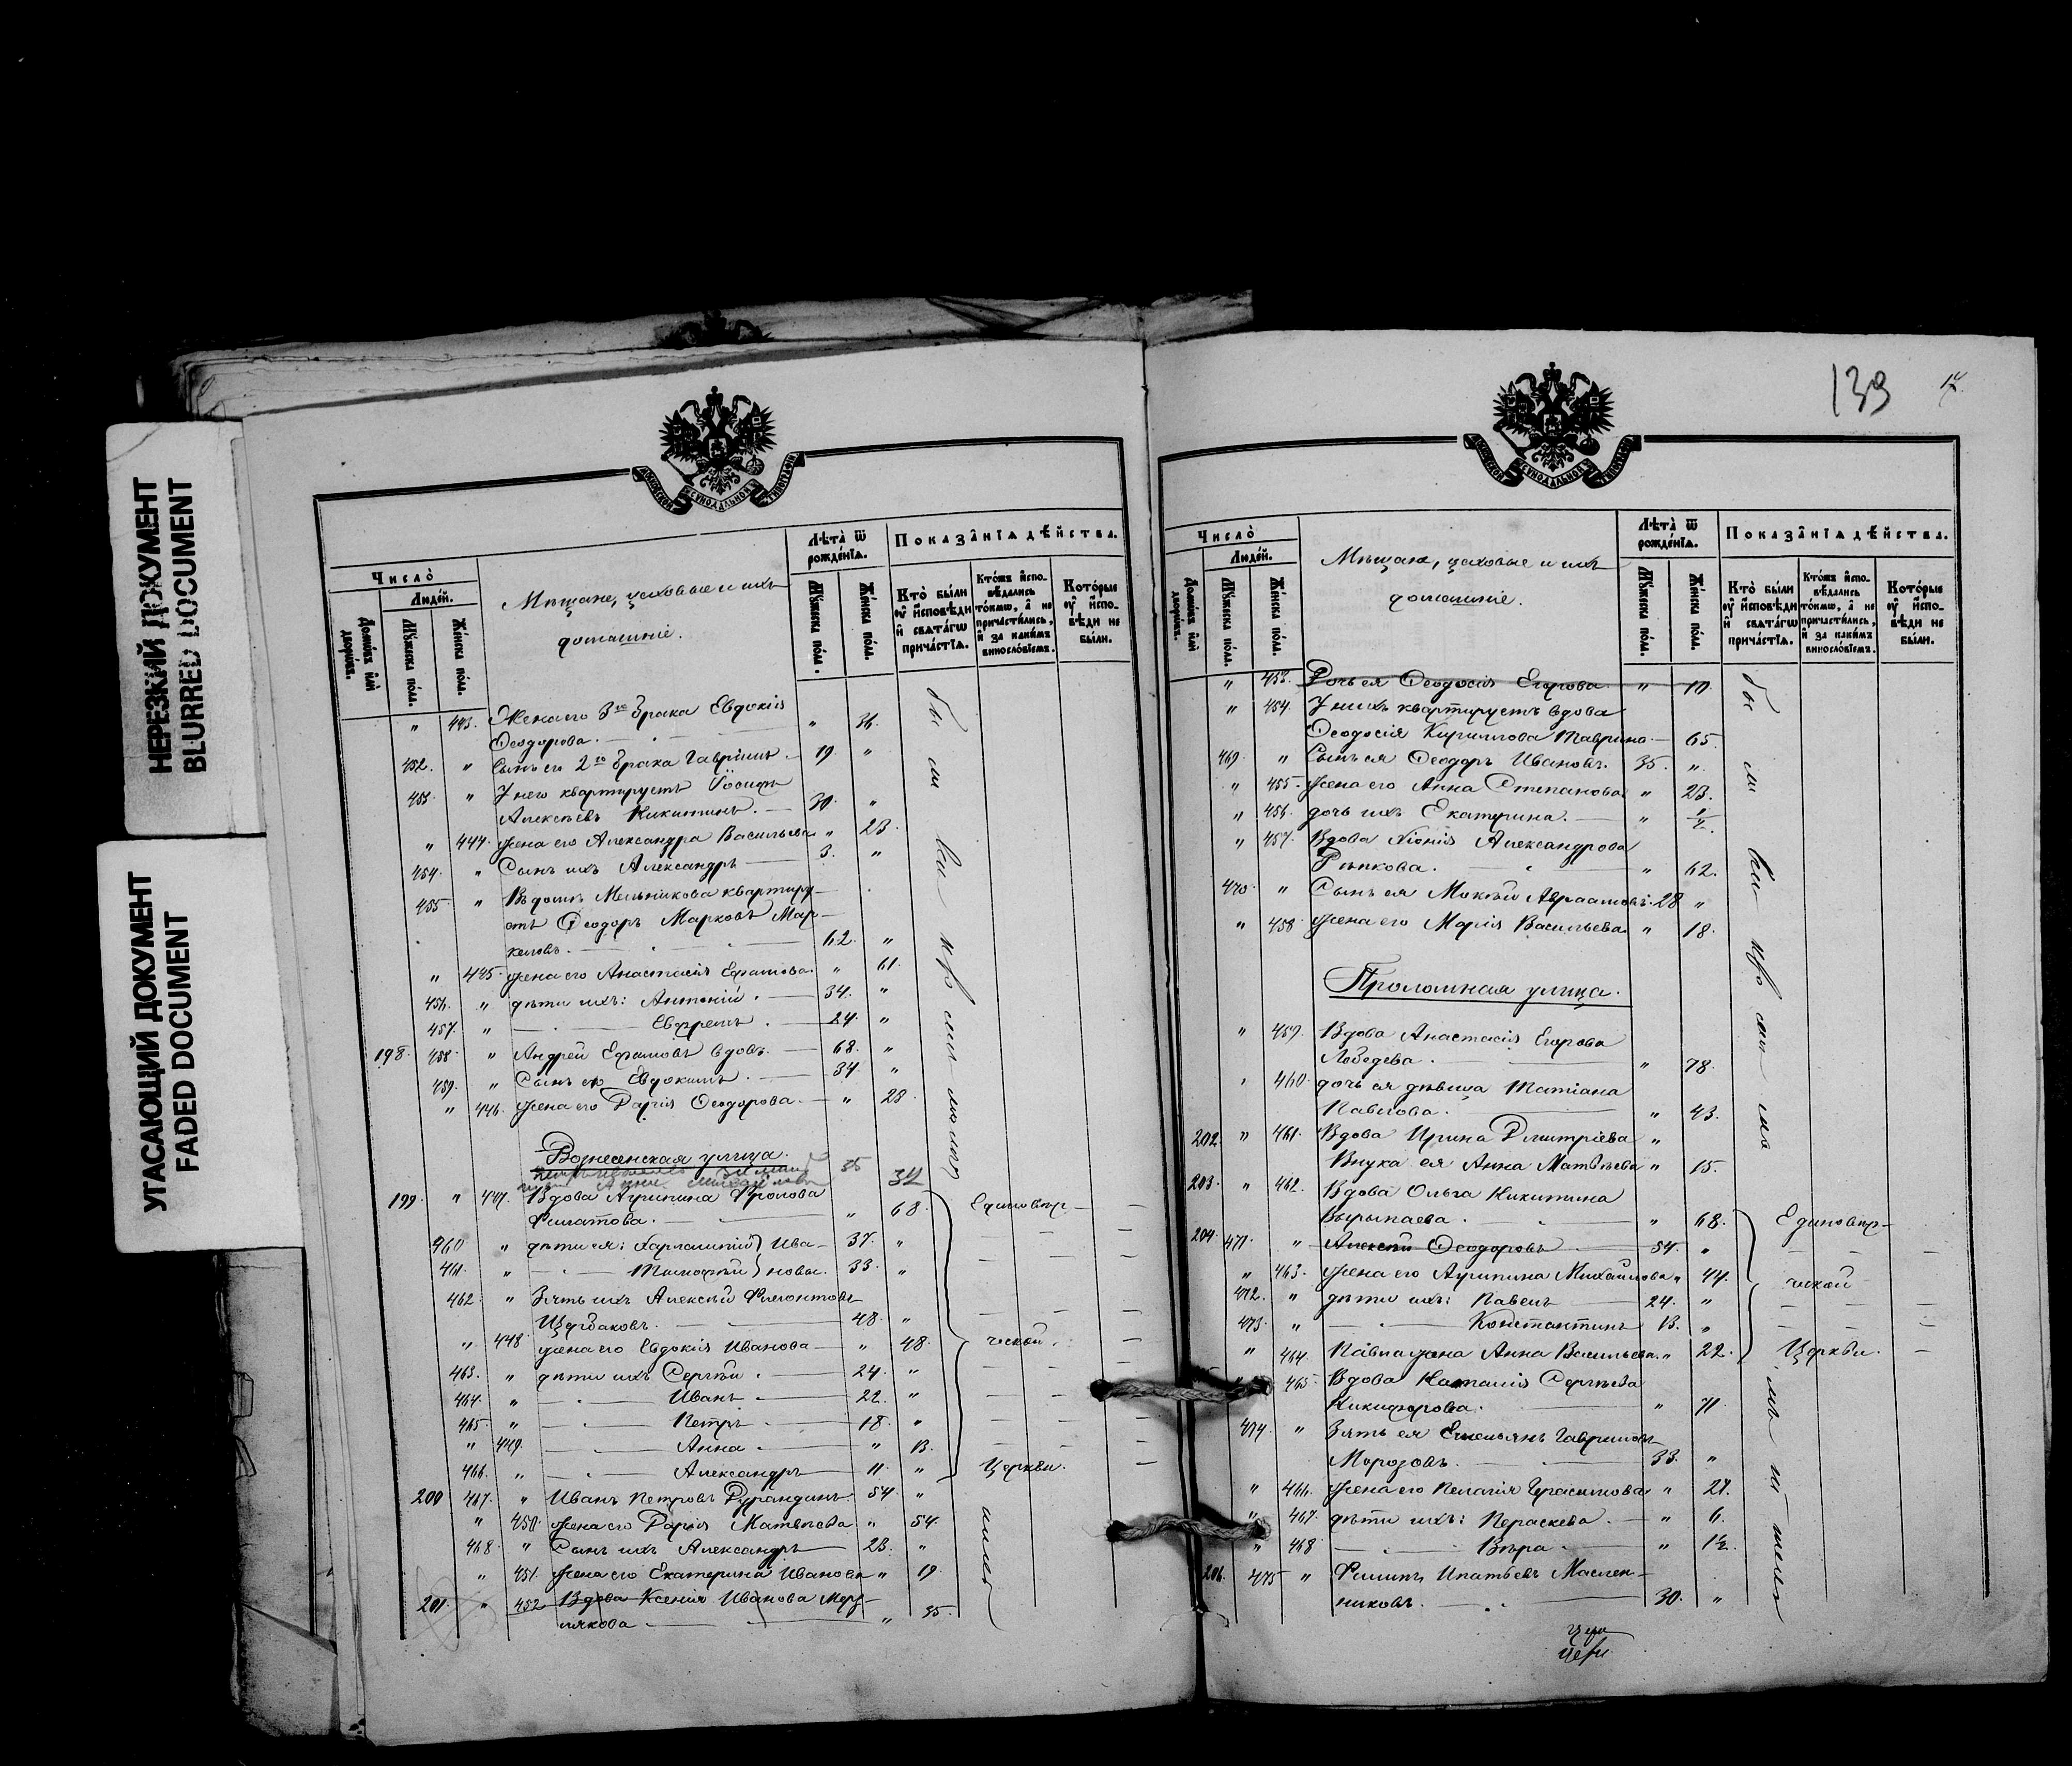 НЕРЕЗКИЙ ДОКУМЕНТ
BLURRED DOCUMENT
УГАСАЮЩИЙ ДОКУМЕНТ
FADED DOCUMENT
Число̀
Людей.
Домѡвъ или дворѡвъ.
Мꙋжеска полꙋ.
Женска полꙋ.
Мѣщане, цеховые и ихъ
домашніе.
Лѣта̀ ѿ рождéнїѧ.
Мꙋжеска полꙋ.
Женска полꙋ.
Показа̂нїѧ дѣ́йства.
Кто̀ были ᲂу҆ и҆сповѣди и҆ свѧта́гѡ прича́стїѧ.
Кто́жъ и҆спо-вѣдались то́кмѡ, а҆ не причасти́лись, и҆ за каки́мъ винослóвїемъ.
Котóрые ᲂу҆ и҆спо-вѣди не были.
" 443. Жена его 3го брака Евдокія
Ѳеодорова. " 36.
452. " Сынъ его 2го брака Гавріилъ 19. "
453. " У него квартируетъ Іосифъ
Алексѣевъ Никитинъ. 30. "
" 444. Жена его Александра Васильева " 23.
454. " Сынъ ихъ Александръ 3. "
455. " Въ домѣ Мельникова квартиру-
етъ Ѳеодоръ Марковъ Мар-
келовъ. 62. "
" 445. Жена его Анастасія Ефимова. " 61.
456. " дѣти ихъ: Антоній. 34. "
457. " Ефремъ. 24. "
198. 458. " Андрей Ефимовъ вдовъ. 68. "
459. " Сынъ его Евдокимъ. 34. "
" 446. Жена его Дарія Ѳеодорова. " 28.
Вознесенская улица.
35 32
199. " 447. Вдова Агрипина Фролова
Филатова. " 68. Единовѣр-
460 " дѣти ея: Харлампій } Ива- 37. "
461. " Тимофѣй } новы. 33. "
462. " Зять ихъ Алексѣй Филонтовъ
Щербаковъ. 48. "
" 448 Жена его Евдокія Иванова " 48. ческой.
463. " дѣти ихъ Сергѣй. 24. "
464. " Иванъ 22. "
465. " Петръ 18. "
" 449. Анна " 13.
466. " Александръ 11. " Церкви.
200 467. " Иванъ Петровъ Дурандинъ. 54. "
" 450. Жена его Дарія Матвѣева " 54.
468. " Сынъ ихъ Александръ 23. "
" 451. Жена его Екатерина Иванова " 19
201. " 452 Вдова Ксенія Иванова Мер-
лякова " 35.
139
Число̀
Людей.
Домѡвъ или дворѡвъ.
Мꙋжеска полꙋ.
Женска полꙋ.
Мѣщане, цеховые и ихъ
домашніе.
Лѣта̀ ѿ рождéнїѧ.
Мꙋжеска полꙋ.
Женска полꙋ.
Показа̂нїѧ дѣ́йства.
Кто̀ были ᲂу҆ и҆сповѣди и҆ свѧта́гѡ прича́стїѧ.
Кто́жъ и҆спо-вѣдались то́кмѡ, а҆ не причасти́лись, и҆ за каки́мъ винослóвїемъ.
Котóрые ᲂу҆ и҆спо-вѣди не были.
" 453. Дочь ея Ѳеодосія Егорова " 10.
" 454. У нихъ квартируетъ вдова
Ѳеодосія Кириллова Таврина 65.
469. " Сынъ ея Ѳеодоръ Ивановъ. 35. "
" 455. Жена его Анна Степанова " 23.
" 456. дочь ихъ Екатерина. " 1/2.
" 457. Вдова Хіонія Александрова
Рѣпкова. " 62.
470. " Сынъ ея Мокѣй Авраамовъ. 28 "
" 458 Жена его Марія Васильева " 18.
Проломная улица.
" 459. Вдова Анастасія Егорова
Лебедева. " 78.
" 460. дочь ея дѣвица Татіана
Павлова. " 43.
202. " 461. Вдова Ирина Дмитріева "
Внука ея Анна Матвѣева " 15.
203. " 462. Вдова Ольга Никитина
Вырыпаева. " 68. Единовѣр-
204. 471. " Алексѣй Ѳеодоровъ 54. "
" 463. Жена его Агрипина Михайлова " 44. ческой
472. " дѣти ихъ: Павелъ 24. "
473. " Константинъ 13. "
" 464. Павла жена Анна Васильева. " 22. Церкви.
" 465. Вдова Наталія Сергѣева
Никифорова. " 71.
474. " Зять ея Емельянъ Гавриловъ
Морозовъ. 33. "
" 466. Жена его Пелагія Герасимова " 27.
" 467. дѣти ихъ: Параскева. " 6.
" 468. Вѣра " 1½.
206. 475 " Филипъ Ипатьевъ Маслен-
никовъ. 30. "